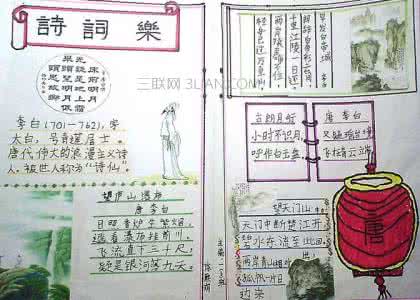 詩詞樂
床前明月
光疑是地上
霜举头望明月低
头思故乡
李白(701-762),字
太白,号青莲居士。
唐代伟大的浪漫主义诗
人,被世人称为“诗仙”
望庐山瀑布
唐 李白
日照香炉生紫烟,
遥看瀑布挂前川
飞流直下三千尺
疑是银河落九天
早发白帝城
朝辞白帝彩云间
千里江陵一日还
两岸猿声啼不住
轻舟已过万重山
古朗月行
小时不识月
呼作白玉盘
唐 李白
又疑瑶台镜
飞在青云端
望天门山
天门中断楚江开
碧水东流至此回
两岸青山相对出
孤帆一片日
边来
唐
三联网 3LIAN.COM